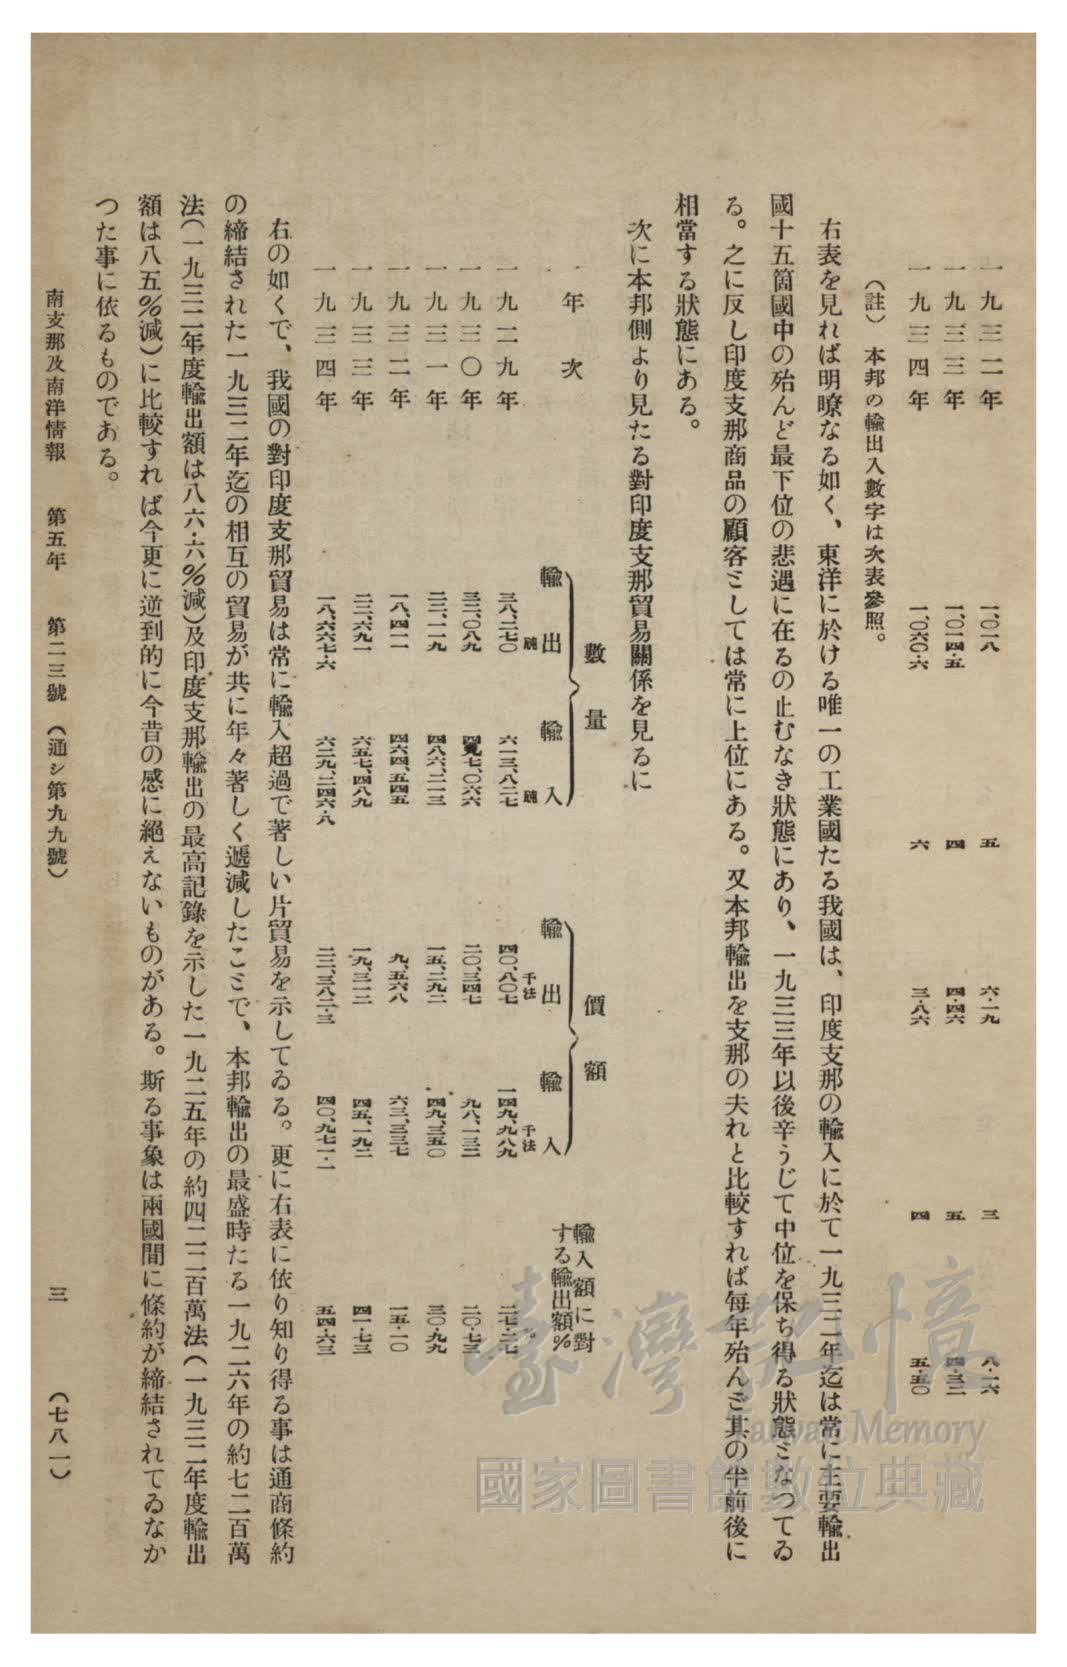 一九三二年 一、〇一八 五 六・一九 三 八・二六
一九三三年 一、〇一四・五 四 四・四六 五 四・三二
一九三四年 一、〇六〇・六 六 三・八六 四 五・五〇
（註） 本邦の輸出入數字は次表參照。
右表を見れば明瞭なる如く、東洋に於ける唯一の工業國たる我國は、印度支那の輸入に於て一九三二年迄は常に主要輸出
國十五箇國中の殆んど最下位の悲遇に在るの止むなき狀態にあり、一九三三年以後辛うじて中位を保ち得る狀態ミなつてゐ
る。之に反し印度支那商品の顧客ミしては常に上位にある。又本邦輸出を支那の夫れと比較すれば毎年殆んど其の半前後に
相當する狀態にある。
次に本邦側より見たる對印度支那貿易關係を見るに
數量 價額
年次 輸出 輸入 輸出 輸入 輸入額に對
する輸出額％
瓲 瓲 千法 千法
一九二九年 三八、二七〇 六一三、八二七 四〇、八〇七 一四九、九八九 二七・二七
一九三〇年 三三、〇八九 七、〇六六 二〇、三四七 九八、一三二 二〇・七三
一九三一年 二二、一一九 四八六、二一三 一五、二九二 四九、三五〇 三〇・九九
一九三二年 一八、四一一 四六四、五四五 九、五六八 六三、三三七 一五・一〇
一九三三年 二三、六九一 六五七、四八九 一九、三一二 四五、一九二 四一・七三
一九三四年 一八、六六七・六 六二九、二四六・八 二二、三八二・三 四〇、九七一・二 五四・六三
右の如くで、我國の對印度支那貿易は常に輸入超過で著しい片貿易を示してゐる。更に右表に依り知り得る事は通商條約
の締結された一九三二年迄の相互の貿易が共に年々著しく遞減したこミで、本邦輸出の最盛時たる一九二六年の約七二百萬
法（一九三二年度輸出額は八六・六％減）及印度支那輸出の最高記錄を示した一九二五年の約四二二百萬法（一九三二年度輸出
額は八五％減）に比較すれば今更に逆到的に今昔の感に絕えないものがある。斯る事象は兩國間に條約が締結されてゐなか
つた事に依るものである。
南支那及南洋情報 第五年 第二三號 （通シ第九九號） 三 （七八一）
臺灣記憶
Taiwan Memory
國家圖書館數位典藏